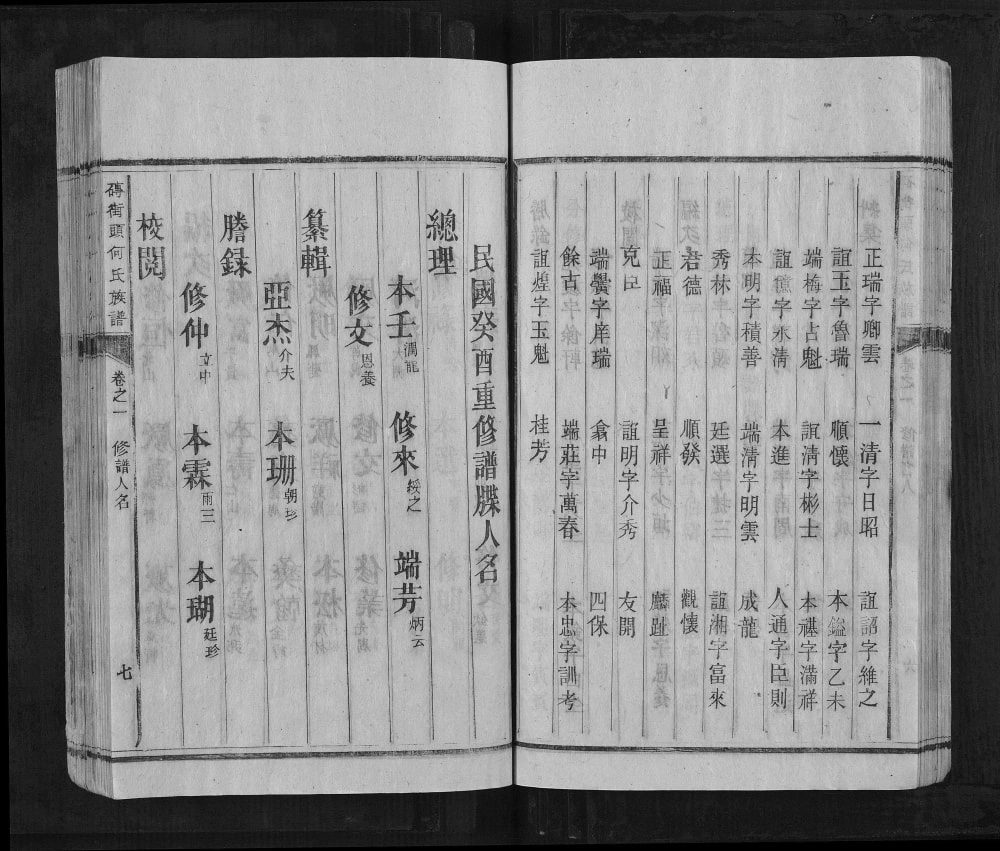 正瑞字卿雲 一清字日昭 誼詔字維之
誼玉字魯瑞 順懷 本鎰字乙未
端梅字占魁 誼清字彬士 本禥字滿祥
誼 字永清 本進 人通字臣則
本明字積善 端清字明雲 成龍
秀林 廷選 誼湘字富來
君德 順發 觀懷
正福 呈祥 麟趾
克 誼明字介秀 友開
端 字庠瑞 翕中 四保
餘古 端莊字萬春 本忠字訓考
誼煌字玉魁 桂芳
民國癸酉重修譜牒人名
總理
本壬 潤龍 修來 綏之 端芳 炳云
修文 恩養
纂輯
亞杰 介夫 本珊 朝珍
謄録
修仲 立中 本霖 雨三 本瑚 廷珍
校閲
磚街頭何氏族譜 卷之一 修譜人名 七